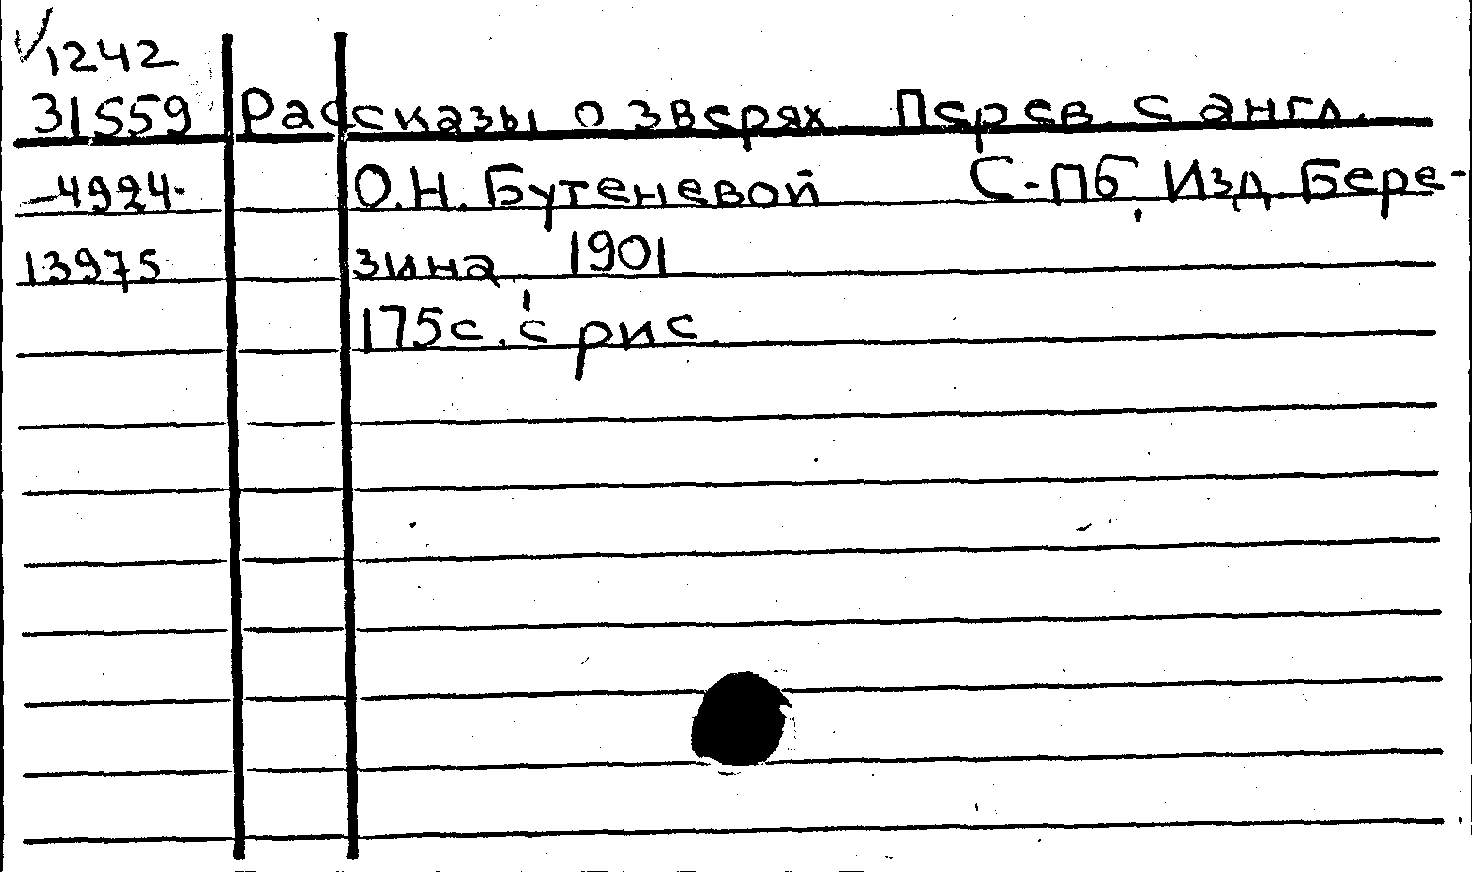 √1242
31559 Рассказы о зверях Перев. с англ.
-4924- О.Н. Бутеневой С-Пб, Изд. Бере-
13975 зина, 1901
175с. с рис.